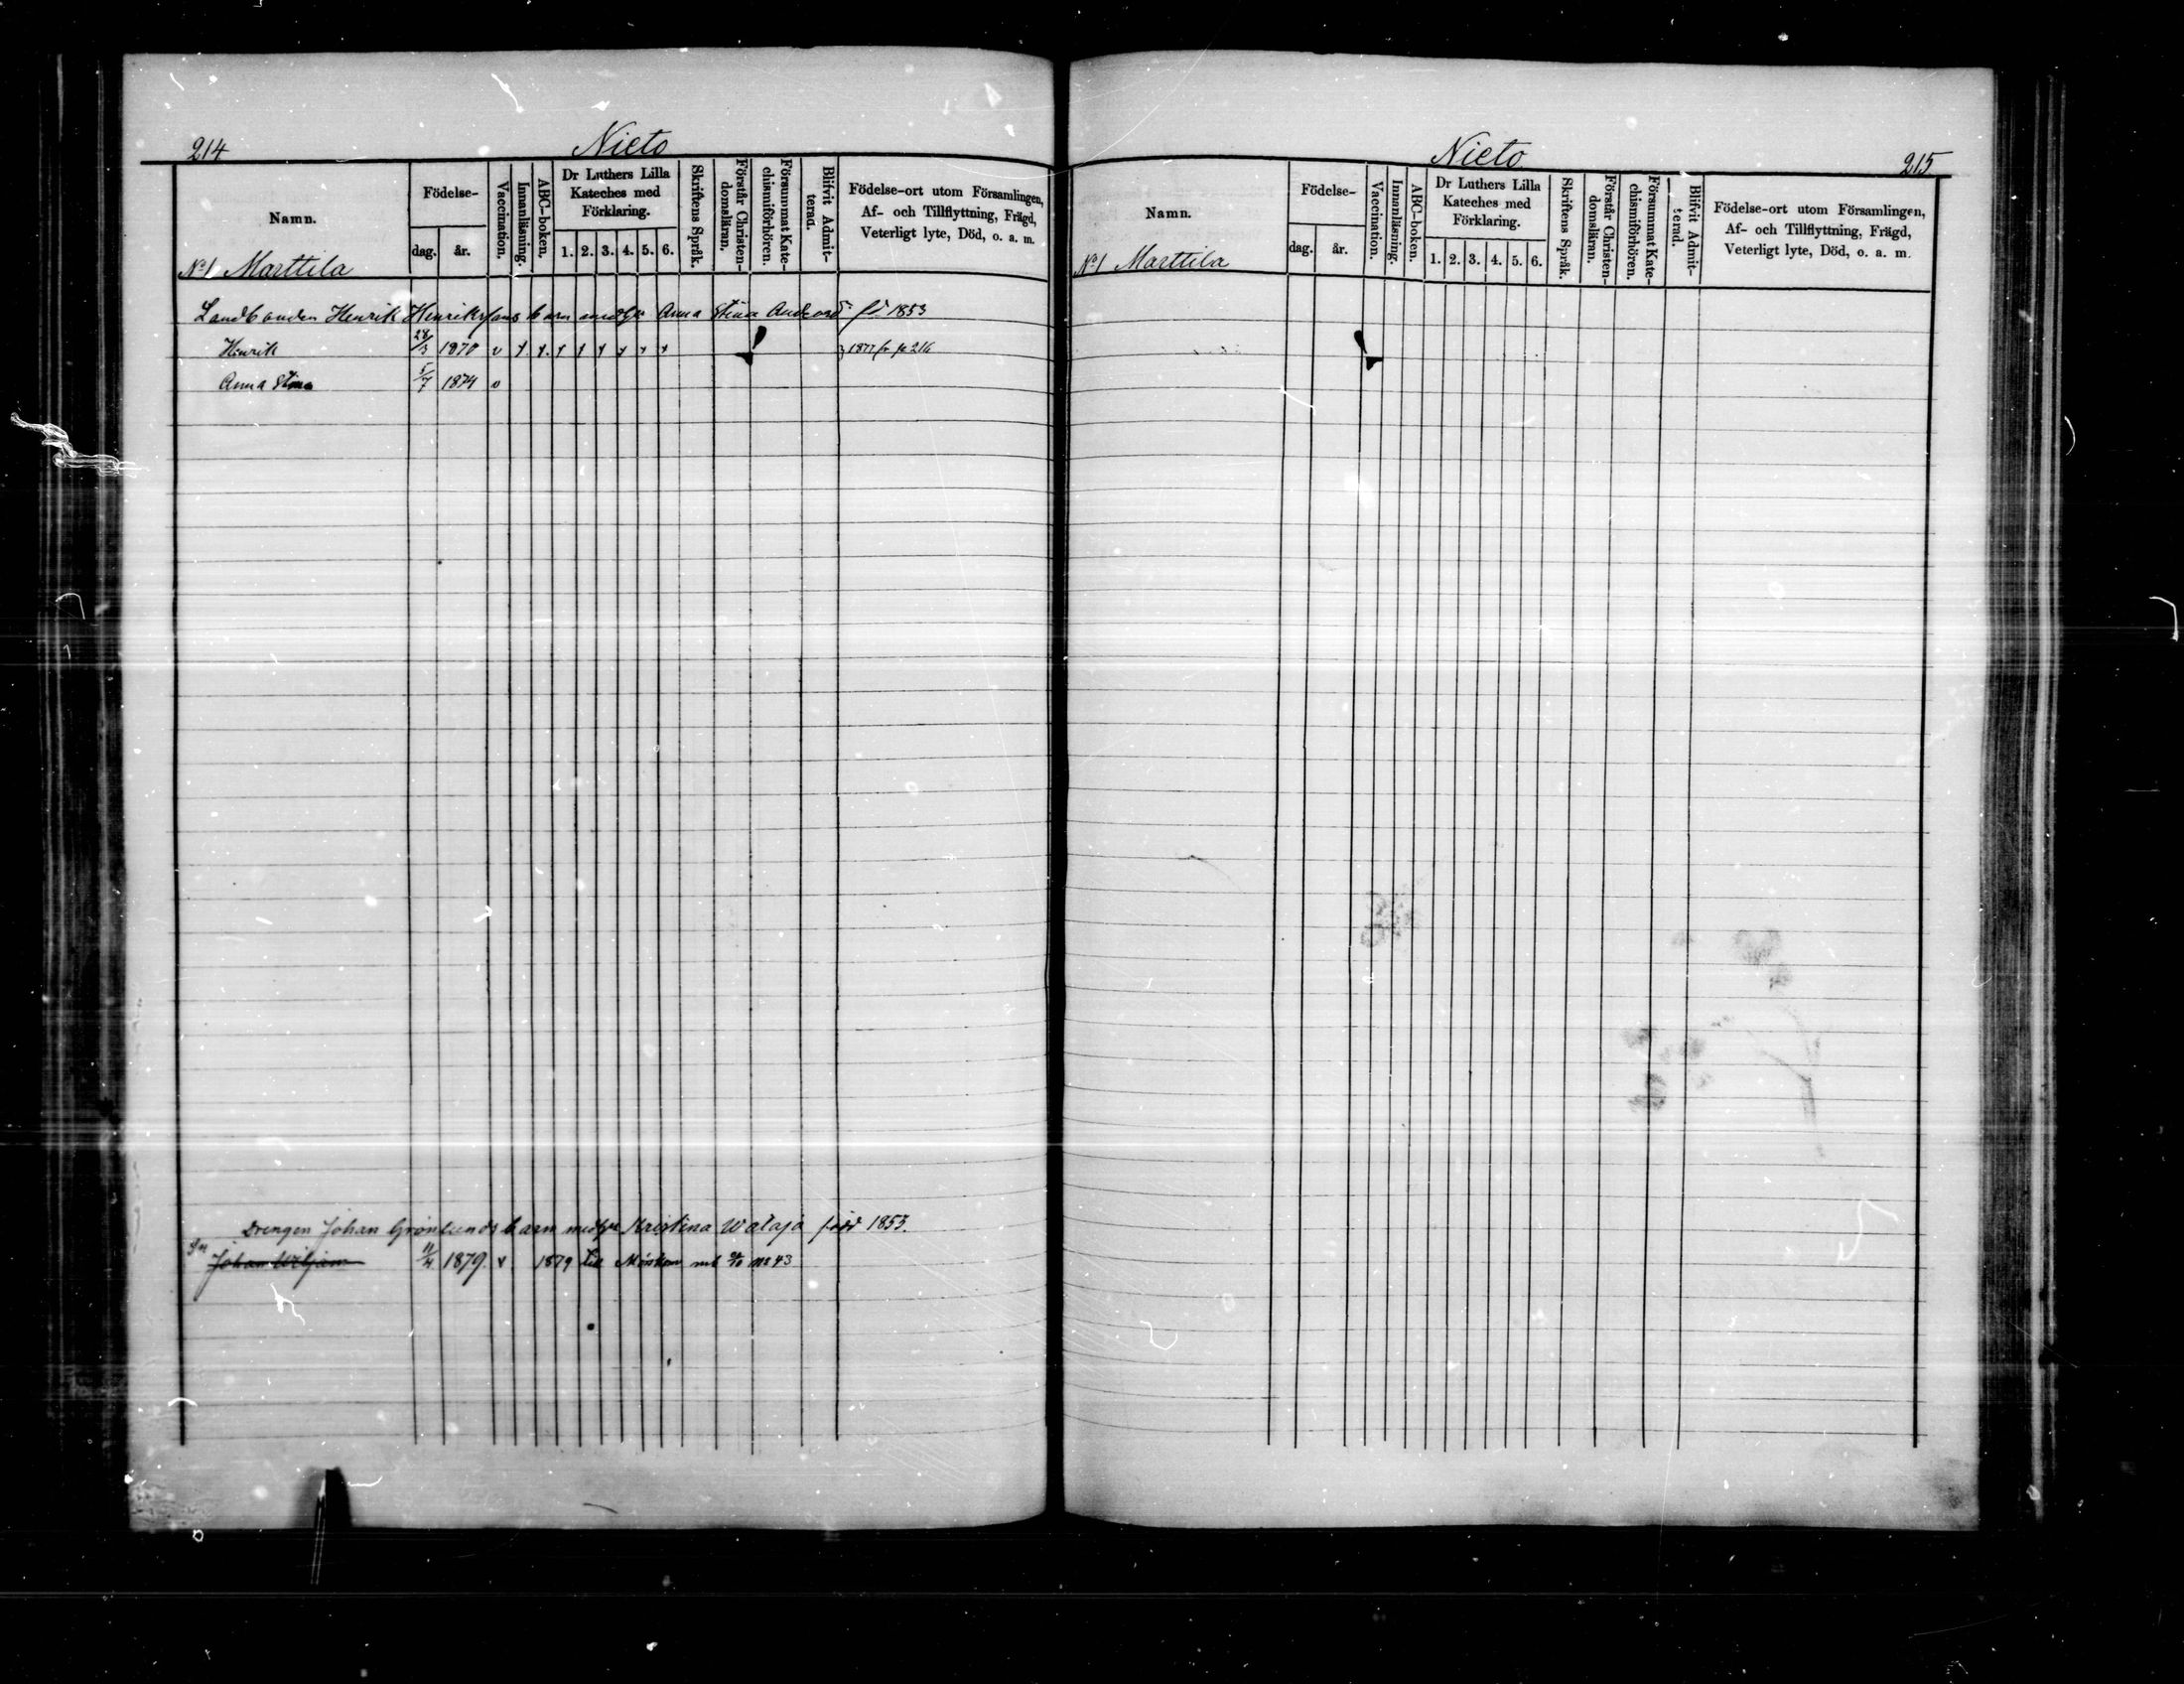 214
Nieto
Namn.
Födelse-
dag.
år.
Vaccination.
Innanläsning.
ABC-boken.
Dr Luthers Lilla
Kateches med
Förklaring.
1. 2. 3. 4. 5. 6.
Skriftens Språk.
Förstår Christen-
domsläran.
Försummat Kate-
chismiförhören.
Blifvit Admit-
terad.
Födelse-ort utom Församlingen,
Af- och Tillflyttning, Frägd,
Veterligt lyte, Död, o. a. m.
No 1 Marttila
Landbonden Henrik Henrikssons barn med Anna Stina 1853
Henrik 28/3 1870 v x x x x x x x x 1877 fr p 216
Anna Stina 5/7 1874 v
Drengen Johan Grönlunds barn med Kristina Wataja född 1853.
Johan Wiljam 11/4 1879. v 1879 till no 43
Nieto
215
Namn.
Födelse-
dag.
år.
Vaccination.
Innanläsning.
ABC-boken.
Dr Luthers Lilla
Kateches med
Förklaring.
1. 2. 3. 4. 5. 6.
Skriftens Språk.
Förstår Christen-
domsläran.
Försummat Kate-
chismiförhören.
Blifvit Admit-
terad.
Födelse-ort utom Församlingen,
Af- och Tillflyttning, Frägd,
Veterligt lyte, Död, o. a. m.
No 1 Marttila